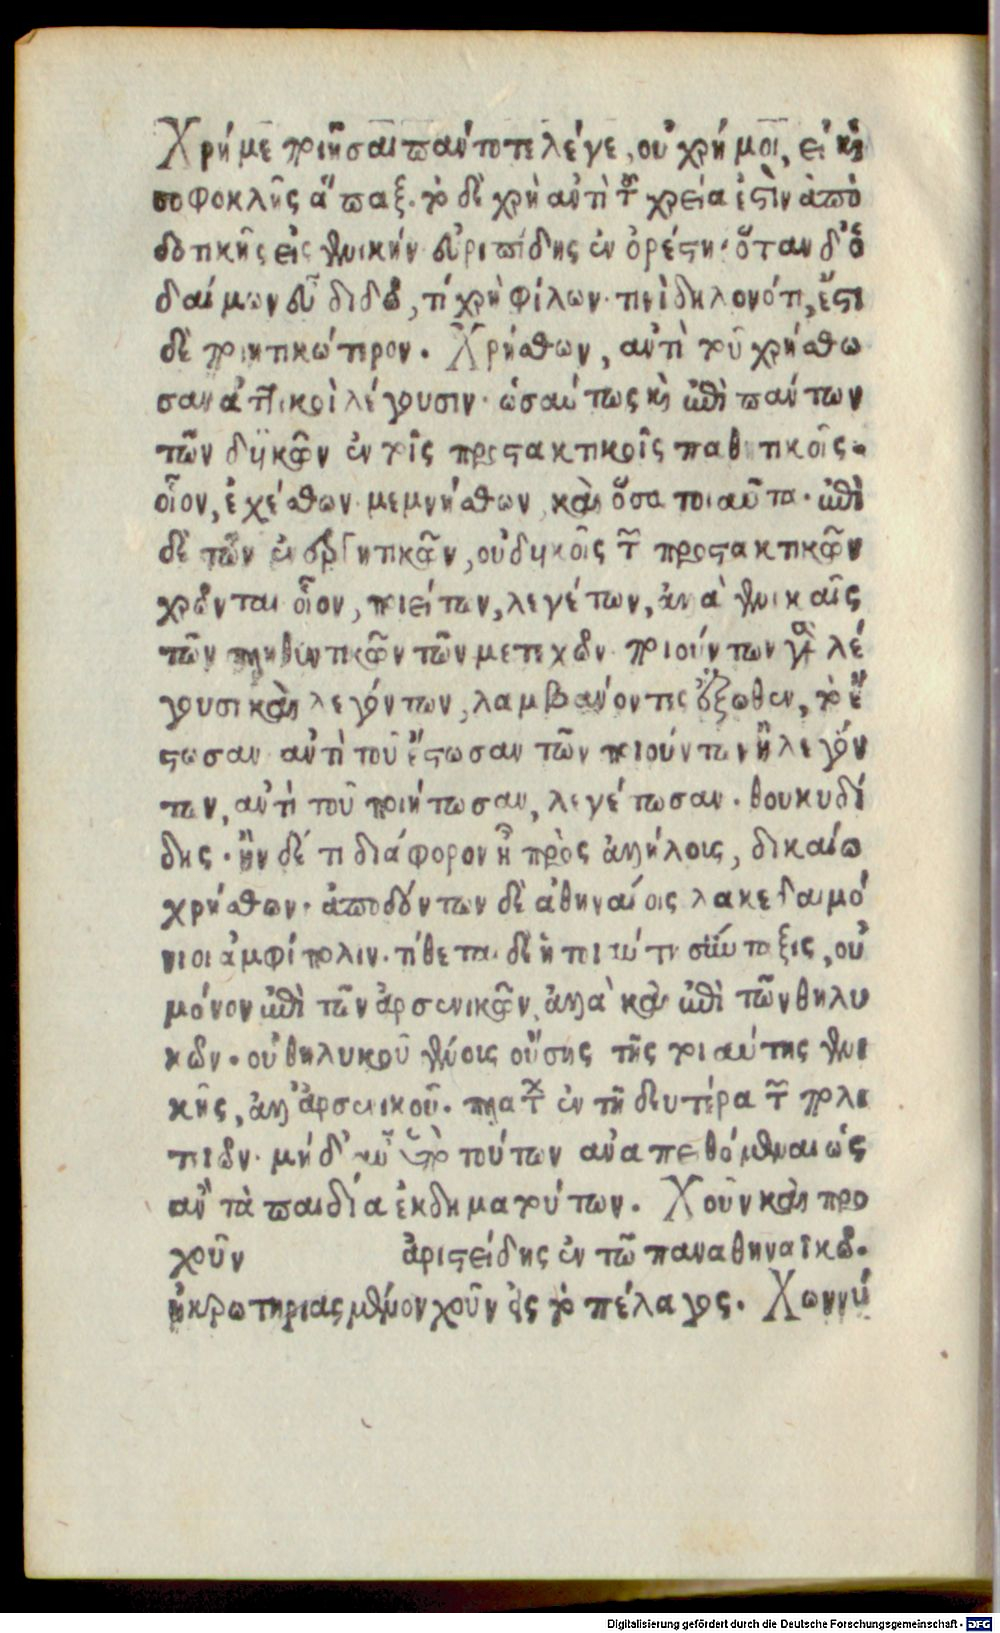 Χρή με ποιῆσαι πάντοτε λέγε, οὐ χρή μοι, εἰ καὶ
σοφοκλῆς ἅπαξ. τὸ δὲ χρὴ αὐτὴ τῆς χρεία ἐστὶν ἀπὸ
δοτικῆς εἰς γενικήν εὐριπίδης ἐν ὀρέστῃ· ὅταν δ' ὁ
δαίμων εὖ διδῷ, τί χρὴ φίλων· τινὶ δηλονότι, ἔστι
δὲ ποιητικώτερον. Χρήσθων, αὐτὶ τοῦ χρήσθω
σαν ἀττικοὶ λέγουσιν· ὡσαύτως καὶ ἐπὶ πάντων
τῶν δυϊκῶν ἐν τοῖς προστακτικοῖς παθητικοῖς.
οἷον, ἐχέσθων μεμνήσθων καὶ ὅσα τοιαῦτα· ἐπὶ
δὲ τῶν ἐνεργητικῶν, οὐ δυϊκοῖς τῶν προστακτικῶν
χρῶνται οἷον, ποιείτων, λεγέτων, ἀλλὰ γενικαῖς
τῶν πληθυντικῶν τῶν μετοχῶν ποιούντων γὰρ λέ
γουσι καὶ λεγόντων, λαμβάνοντες ἔξωθεν, τὸ ἔ
στωσαν αὐτὶ τοῦ ἔστωσαν τῶν ποιούντων ἢ λεγόν
των, αὐτὶ τοῦ ποιήτωσαν, λεγέτωσαν. θουκυδί
δης· ἢν δέ τι διάφορον ᾖ πρὸς ἀλλήλους, δικαίῳ
χρήσθων· ἀποδόντων δὲ ἀθηναίοις λακεδαιμό
νιοι ἀμφίπολιν. τίθεται δὲ ἡ τοιαύτη σύνταξις, οὐ
μόνον ἐπὶ τῶν ἀρσενικῶν, ἀλλὰ καὶ ἐπὶ τῶν θηλυ
κῶν. οὐ θηλυκοῦ γένους οὔσης τῆς τοιαύτης γενι
κῆς, ἀλλ' ἀρσενικοῦ. πλάτων ἐν τῇ δευτέρᾳ τῶν πολι
τειῶν· μήδ' αὖ ὑπὸ τούτων ἀναπειθόμεναι ὡς
αὖ τὰ παιδία ἐκδηματούτων. Χοῦν καὶ προ
χοῦν ἀριστείδης ἐν τῷ παναθηναϊκῷ.
ἠκρωτηριασμένον χοῦν εἰς τὸ πέλαγος. Χωννύ
Digitalisierung gefördert durch die Deutsche Forschungsgemeinschaft - DFG